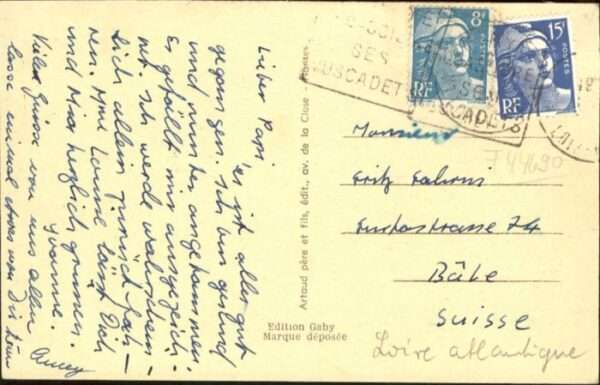 Lieber Papi
es ist alles gut
gegangen. Ich bin gesund
und munter angekommen.
Es gefällt mir ausgezeich-
net. Ich werde wahrschein-
lich allein zurück fah-
ren. Mme Louise lässt Dich
und Mimi herzlich grüssen.
Yvonne.
Viele Grüsse von uns allen
lasse einmal etwas von Dir hören
Artaud père et fils, édit., av. de la Close - Nantes
Edition Gaby
Marque déposée
SES
MUSCADETS
SES
MUSCADETS
8F
RF
15F
POSTES
RF
Monsieur
Fritz
74
Bâle
Suisse
Loire atlantique